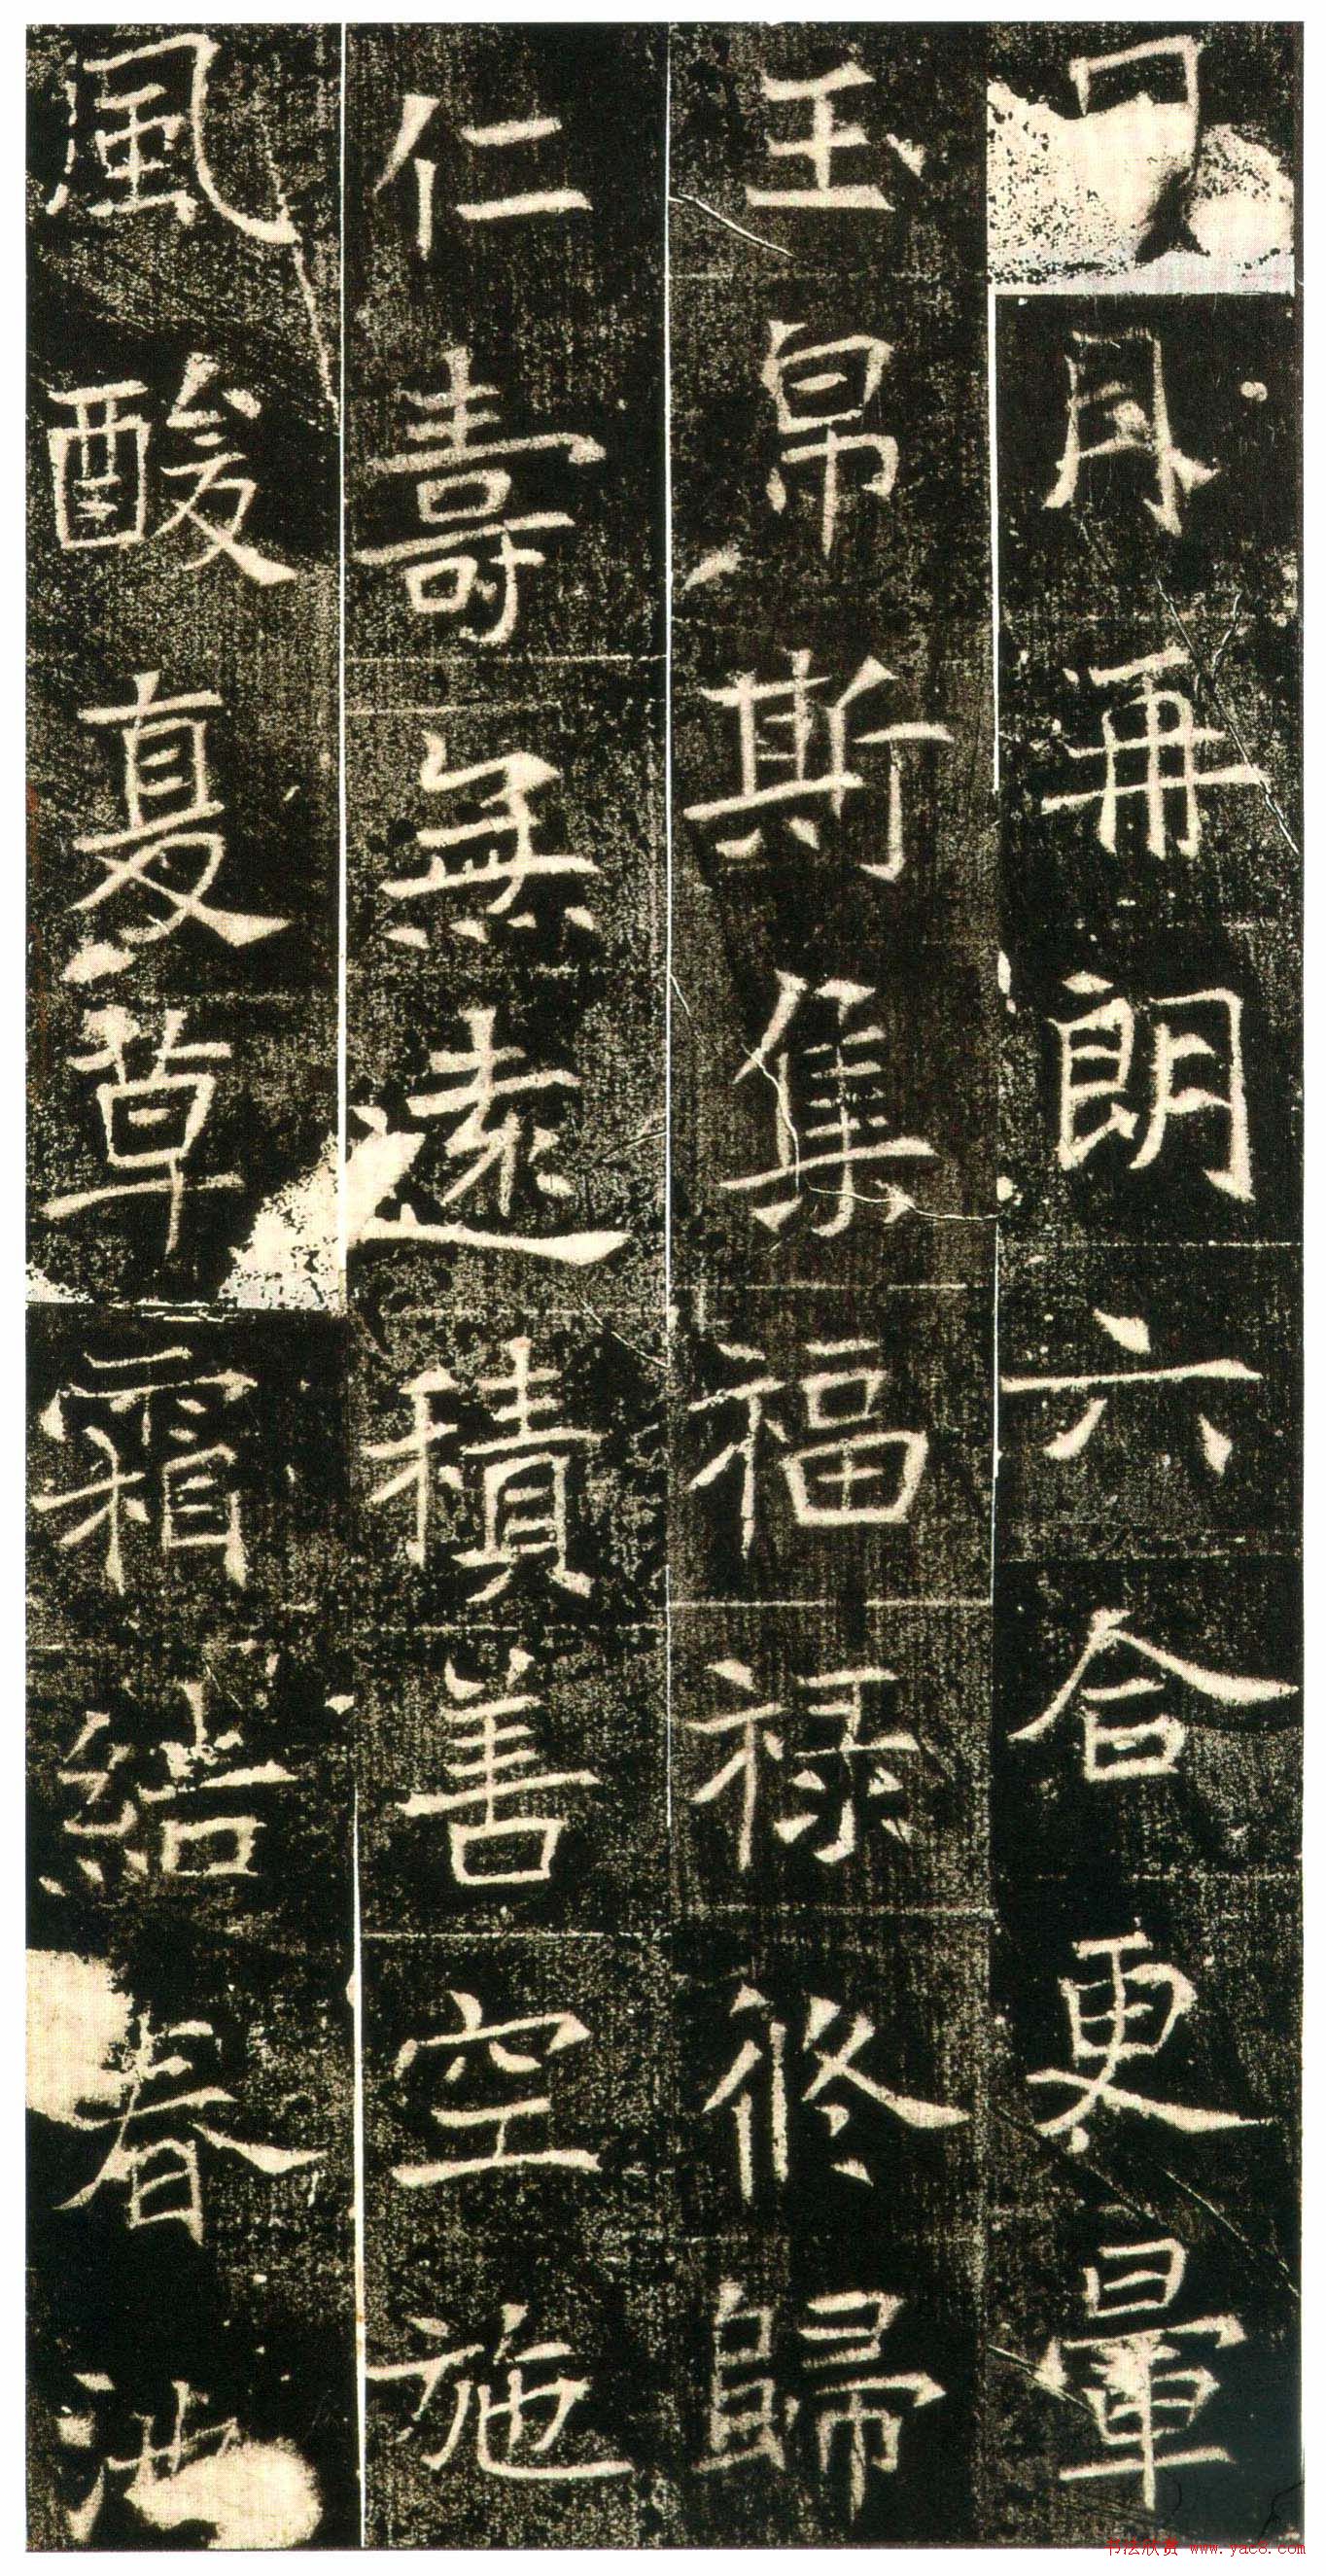 日月再朗六合更暈
玉帛斯集福祿修歸
仁壽無遠積善空施
風酸夏草霜結春池
书法欣赏 www.yac8.com